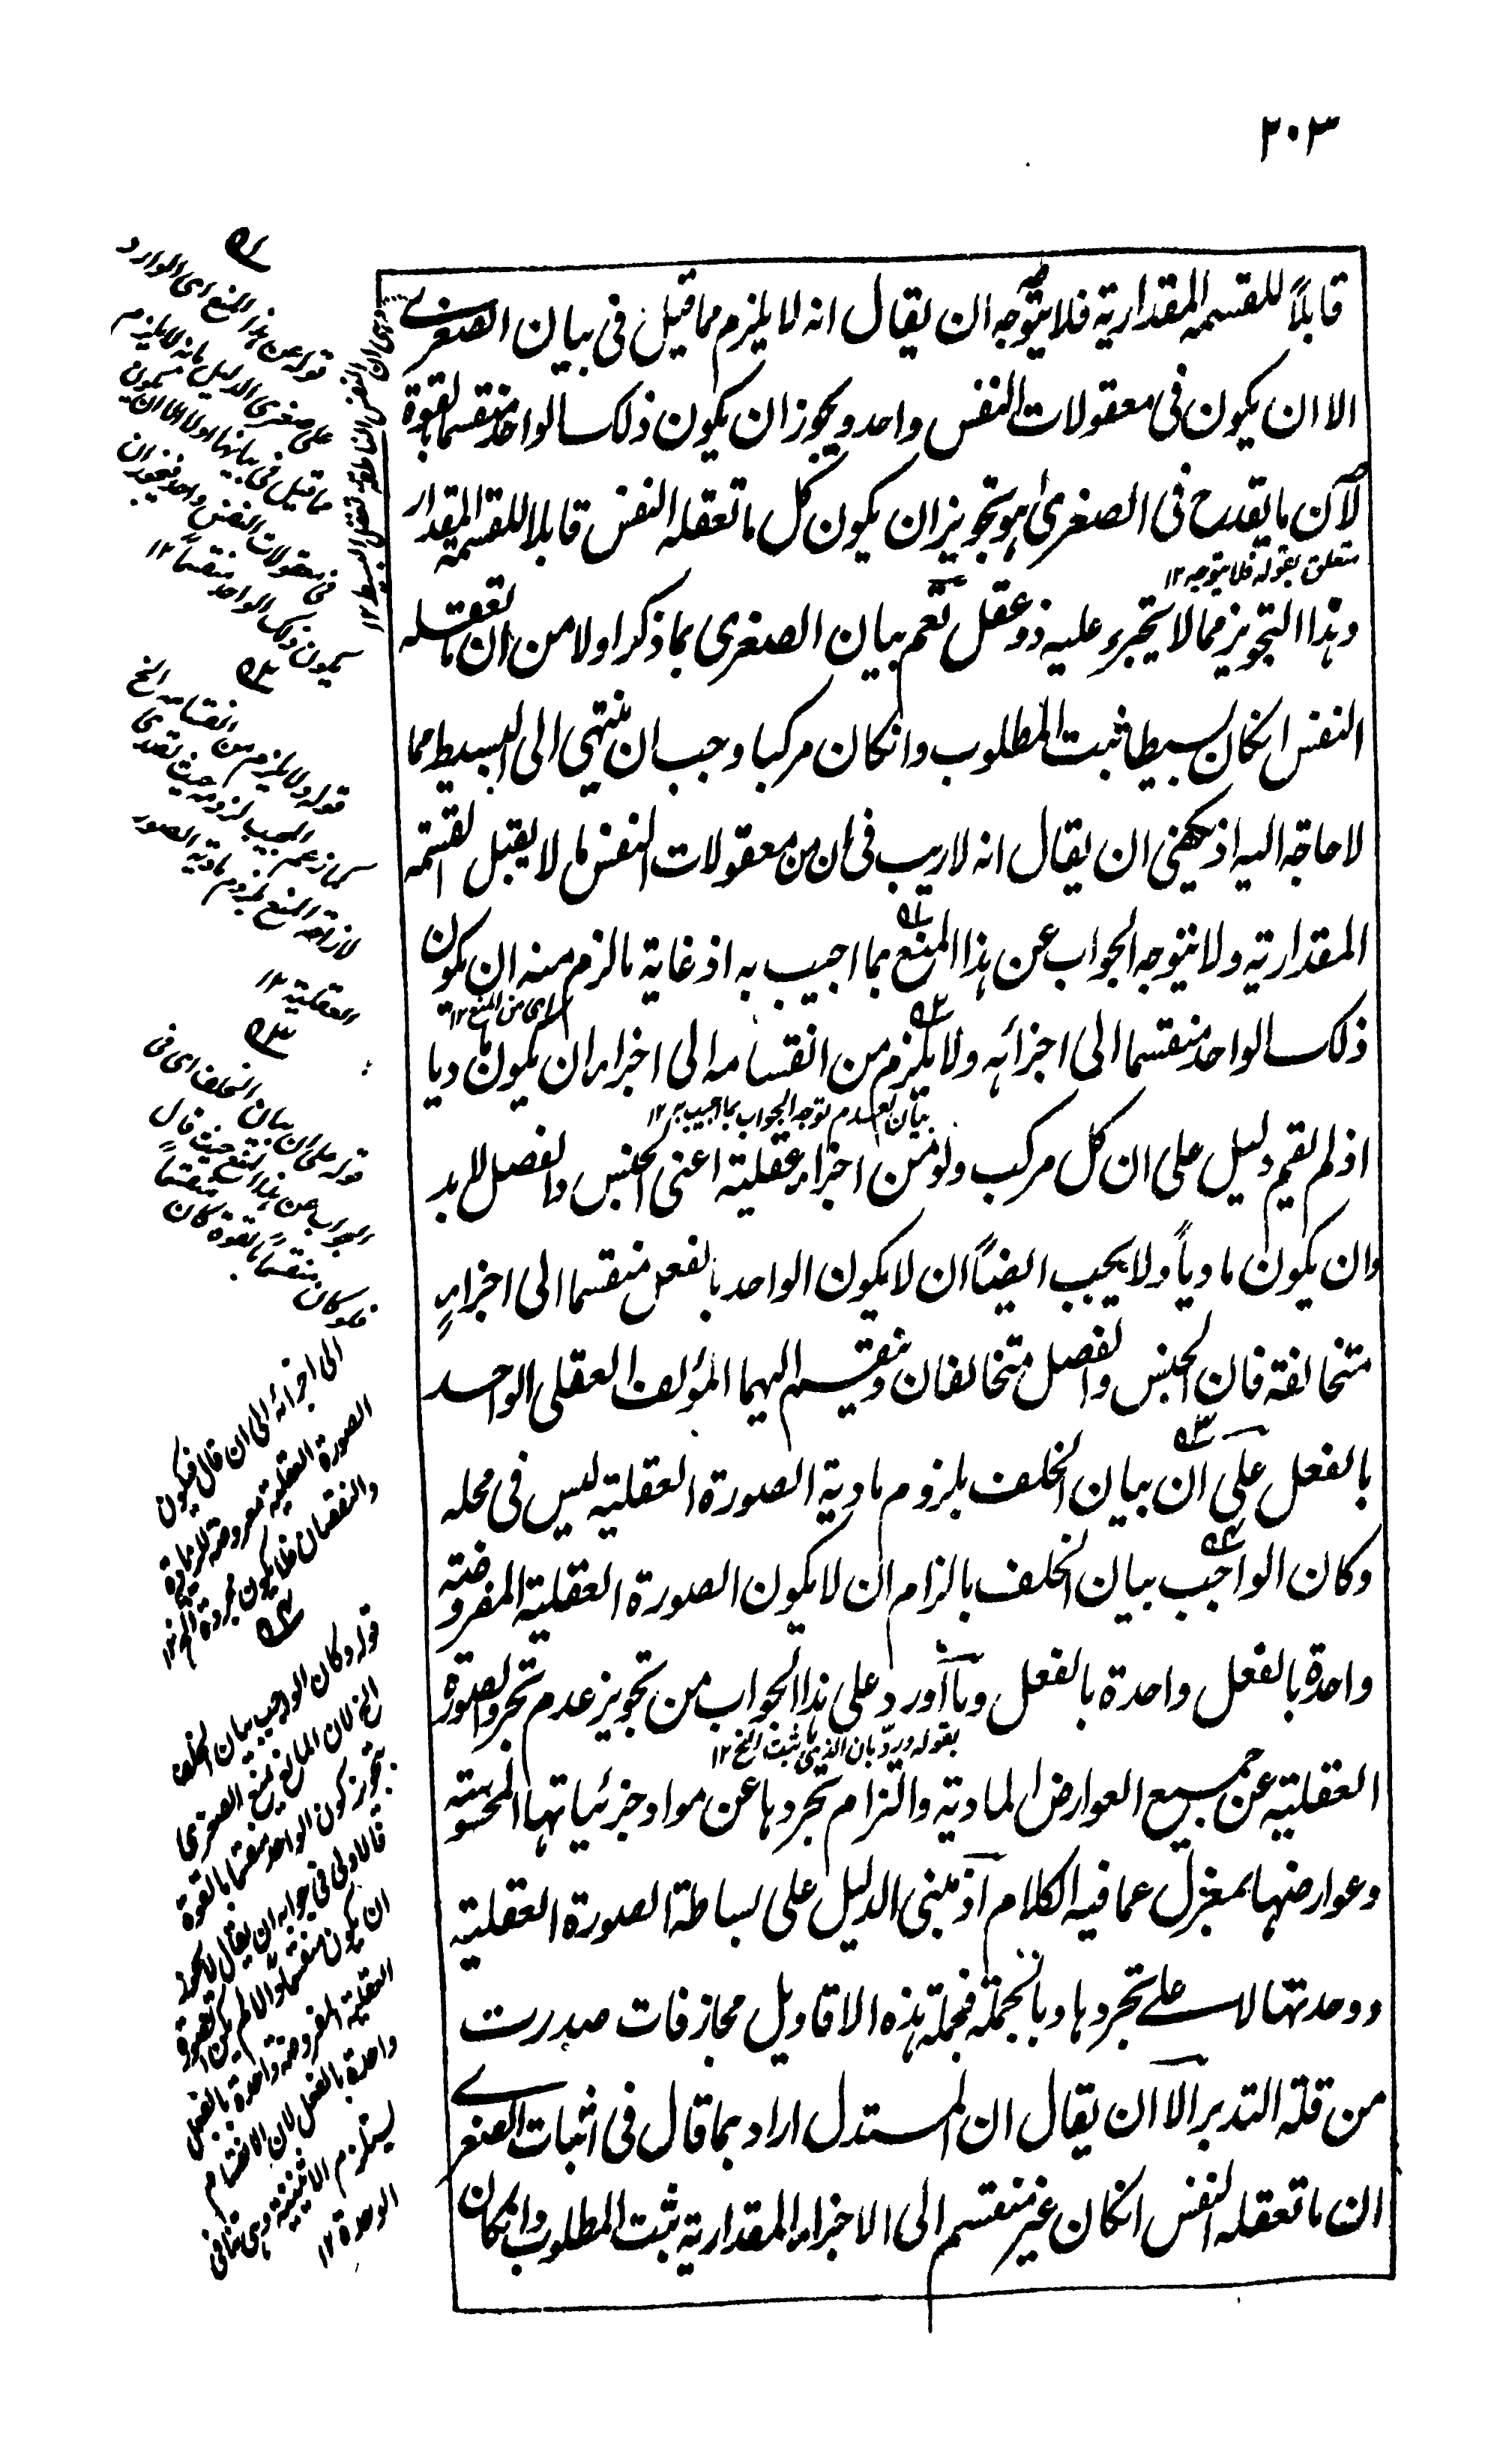 ٢٠٣
قابلاً للقسمة المقدارية فلا يتوجه ان يقال انه لا يلزم مما قيل فى بيان الصغرے
الا ان يكون فى معقولات النفس واحد ويجوز ان يكون ذلك الواحد منقسما بالقوة
لآن ما يقدح فى الصغرى هو تجويز ان يكون كل ما تعقله النفس قابلا للقسمة المقدار
متعلق بقوله فلا يتوجه ١٢
وهذا التجويز مما لا يتجرء عليه ذو عقل نعم بيان الصغرى بما ذكر اولا من ان ما تعقله
النفس انكان بسيطا ثبت المطلوب وانكان مركبا وجب ان ينتهى الى البسيط مما
لا حاجة اليه اذ يكفى ان يقال انه لا ريب فى ان من معقولات النفس ما لا يقبل القسمة
المقدارية ولا يتوجه الجواب عن هذا المنع بما اجيب به اذ غاية ما لزم منه ان يكون
اى من المنع ١٢
ذلك الواحد منقسما الى اجزائه ولا يلزم من انقسامه الى اجزاء ان يكون ماديا
بيان لعدم توجه الجواب بما اجيب به ١٢
اذ لم يقم دليل على ان كل مركب ولو من اجزاء عقلية اعنى الجنس والفصل لا بد
وان يكون ماديا ولا يجب ايضاً ان لا يكون الواحد بالفعل منقسما الى اجزاءٍ
متخالفة فان الجنس والفصل متخالفان وينقسم اليهما المؤلف العقلى الواحد
بالفعل على ان بيان الخلف بلزوم مادية الصورة العقلية ليس فى محله
وكان الواجب بيان الخلف بالزام ان لا يكون الصورة العقلية المفروضة
واحدة بالفعل واحدة بالفعل وما آورد على هذا الجواب من تجويز عدم تجرد الصورة
بقوله ويرد بان الذى ما ثبت الخ ١٢
العقلية عن جميع العوارض المادية والتزام تجردها عن مواد جزئياتها المحسوسة
وعوارضها بمعزل عما فيه الكلام اذ مبنى الدليل على بساطة الصورة العقلية
ووحدتها لا على تجردها وبالجملة فجملة هذه الاقاويل مجازفات صدرت
من قلة التدبر الا ان يقال ان المستدل اراد بما قال فى اثبات الصغرے
ان ما تعقله النفس انكان غير منقسم الى الاجزاء المقدارية ثبت المطلوب وانكان
قوله عن هذا المنع اى الوارد
على صغرى الدليل بانه لا يلزم
ما قيل فى بيانها اولا الا ان يكون
فى معقولات النفس واحد فيجوز ان
يكون ذلك الواحد منقسما ١٢
قوله ولا يلزم من انقسامه الخ
كما زعم المجيب لزومه حيث تصدى
لازاحة المنع بلزوم مادية الصور
العقلية ١٢
قوله على ان بيان الخلف اى فى
الجواب عن هذا المنع حيث قال
فلو كان منقسماً بالقوة كان منقسماً
الى اجزائه الى ان قال فيكون
الصورة العقلية معروضة للزيادة
والنقصان فلا يكون مجردة الخ ١٢
قوله وكان الواجب بيان الخلف
الخ لان المانع يمنع الصغرى
بتجويز كون الواحد منقسما بالقوة
فالاولى فى جوابه ان يقال لا يجوز
ان يكون منقسما والا لم يكن الصورة
العقلية المفروضة واحدة بالفعل
واحدة بالفعل لان الانقسام
يستلزم الاثنينية وهى تنافى
الوحدة ١٢